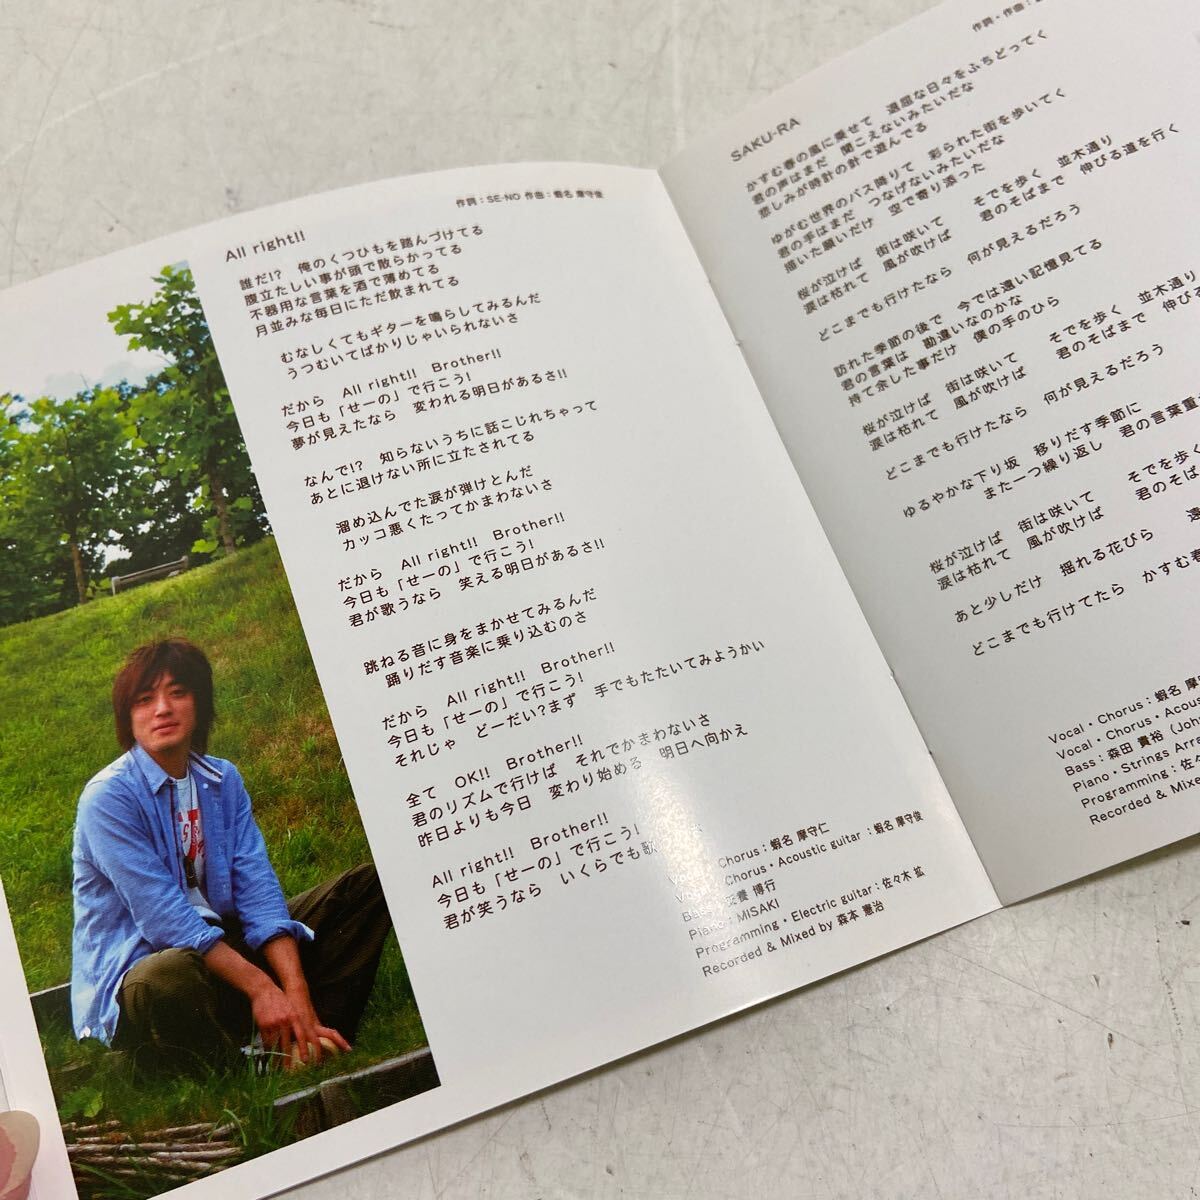 作詞：SE-NO 作曲：蝦名 摩守俊
All right!!
誰だ!?　俺のくつひもを踏んづけてる
腹立たしい事が頭で散らかってる
不器用な言葉を酒で薄めてる
月並みな毎日にただ飲まれてる
むなしくてもギターを鳴らしてみるんだ
うつむいてばかりじゃいられないさ
だから　All right!!　Brother!!
今日も「せーの」で行こう!
夢が見えたなら　変われる明日があるさ!!
なんで!?　知らないうちに話こじれちゃって
あとに退けない所に立たされてる
溜め込んでた涙が弾けとんだ
カッコ悪くたってかまわないさ
だから　All right!!　Brother!!
今日も「せーの」で行こう!
君が歌うなら　笑える明日があるさ!!
跳ねる音に身をまかせてみるんだ
踊りだす音楽に乗り込むのさ
だから　All right!!　Brother!!
今日も「せーの」で行こう!
それじゃ　どーだい?まず　手でもたたいてみようかい
全て　OK!!　Brother!!
君のリズムで行けば　それでかまわないさ
昨日よりも今日　変わり始める　明日へ向かえ
All right!!　Brother!!
今日も「せーの」で行こう!
君が笑うなら　いくらでも歌
Chorus：蝦名 摩守仁
Chorus・Acoustic guitar：蝦名 摩守俊
博行
Piano：MISAKI
Programming・Electric guitar：佐々木 拡
Recorded & Mixed by 森本 憲治
作詞・作曲：
SAKU-RA
かすむ春の風に乗せて　退屈な日々をふちどってく
君の声はまだ　聞こえないみたいだな
悲しみが時計の針で遊んでる
ゆがむ世界のバス降りて　彩られた街を歩いてく
君の手はまだ　つなげないみたいだな
描いた願いだけ　空で寄り添った
桜が泣けば　街は咲いて　そでを歩く　並木通り
涙は枯れて　風が吹けば　君のそばまで　伸びる道を行く
どこまでも行けたなら　何が見えるだろう
訪れた季節の後で　今では遠い記憶見てる
君の言葉は　勘違いなのかな
持て余した事だけ　僕の手のひら
桜が泣けば　街は咲いて　そでを歩く　並木通り
涙は枯れて　風が吹けば　君のそばまで　伸びる
どこまでも行けたなら　何が見えるだろう
ゆるやかな下り坂　移りだす季節に
また一つ繰り返し　君の言葉重
桜が泣けば　街は咲いて　そでを歩く
涙は枯れて　風が吹けば　君のそば
あと少しだけ　揺れる花びら
どこまでも行けてたら　かすむ春
Vocal・Chorus：蝦名 摩
Vocal・Chorus・Acous
Bass：森田 貴裕 (Joh
Piano・Strings Arra
Programming：佐々
Recorded & Mixe